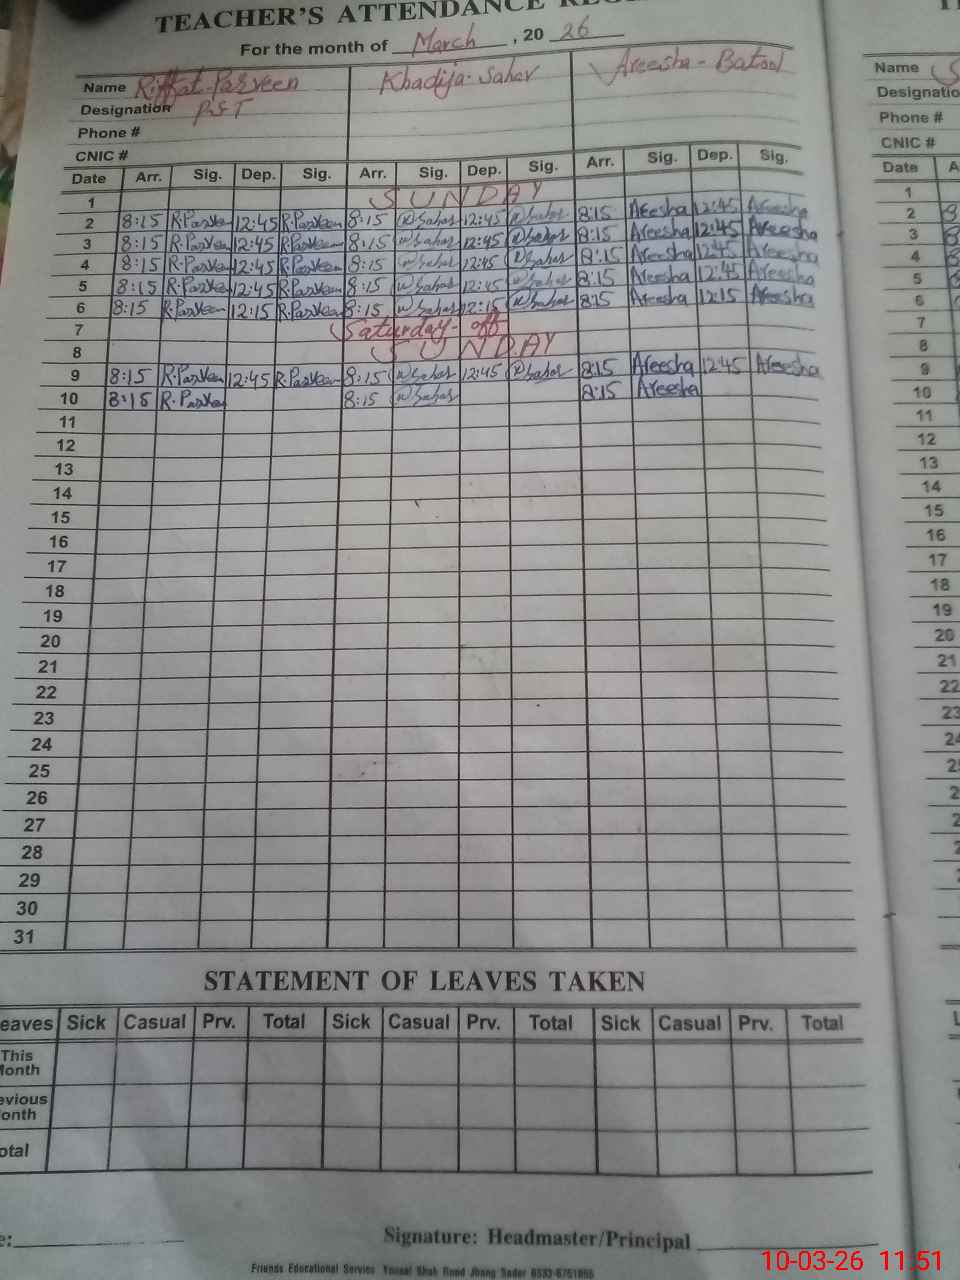 TEACHER'S ATTENDANCE
For the month of March, 20 26
Name Riffat Parveen Khadija-Sahar Areesha-Batool Name
Designation PST Designatio
Phone # Phone #
CNIC # CNIC #
Date Arr. Sig. Dep. Sig. Arr. Sig. Dep. Sig. Arr. Sig. Dep. Sig. Date A
1 SUNDAY 1
2 8:15 R.Parveen 12:45 R.Parveen 8:15 Sahar 12:45 Sahar 8:15 Areesha 12:45 Areesha 2
3 8:15 R.Parveen 12:45 R.Parveen 8:15 Sahar 12:45 Sahar 8:15 Areesha 12:45 Areesha 3
4 8:15 R.Parveen 12:45 R.Parveen 8:15 Sahar 12:45 Sahar 8:15 Areesha 12:45 Areesha 4
5 8:15 R.Parveen 12:45 R.Parveen 8:15 Sahar 12:45 Sahar 8:15 Areesha 12:45 Areesha 5
6 8:15 R.Parveen 12:15 R.Parveen 8:15 Sahar 12:15 Sahar 8:15 Areesha 12:15 Areesha 6
7 Saturday-off 7
8 SUNDAY 8
9 8:15 R.Parveen 12:45 R.Parveen 8:15 Sahar 12:45 Sahar 8:15 Areesha 12:45 Areesha 9
10 8:15 R.Parveen 8:15 Sahar 8:15 Areesha 10
11 11
12 12
13 13
14 14
15 15
16 16
17 17
18 18
19 19
20 20
21 21
22 22
23 23
24 24
25 2
26 2
27 2
28 2
29
30
31
STATEMENT OF LEAVES TAKEN
eaves Sick Casual Prv. Total Sick Casual Prv. Total Sick Casual Prv. Total
This
Month
evious
onth
otal
e:
Signature: Headmaster/Principal
Friends Educational Service Yousaf Shah Road Jhang Sader
10-03-26 11:51